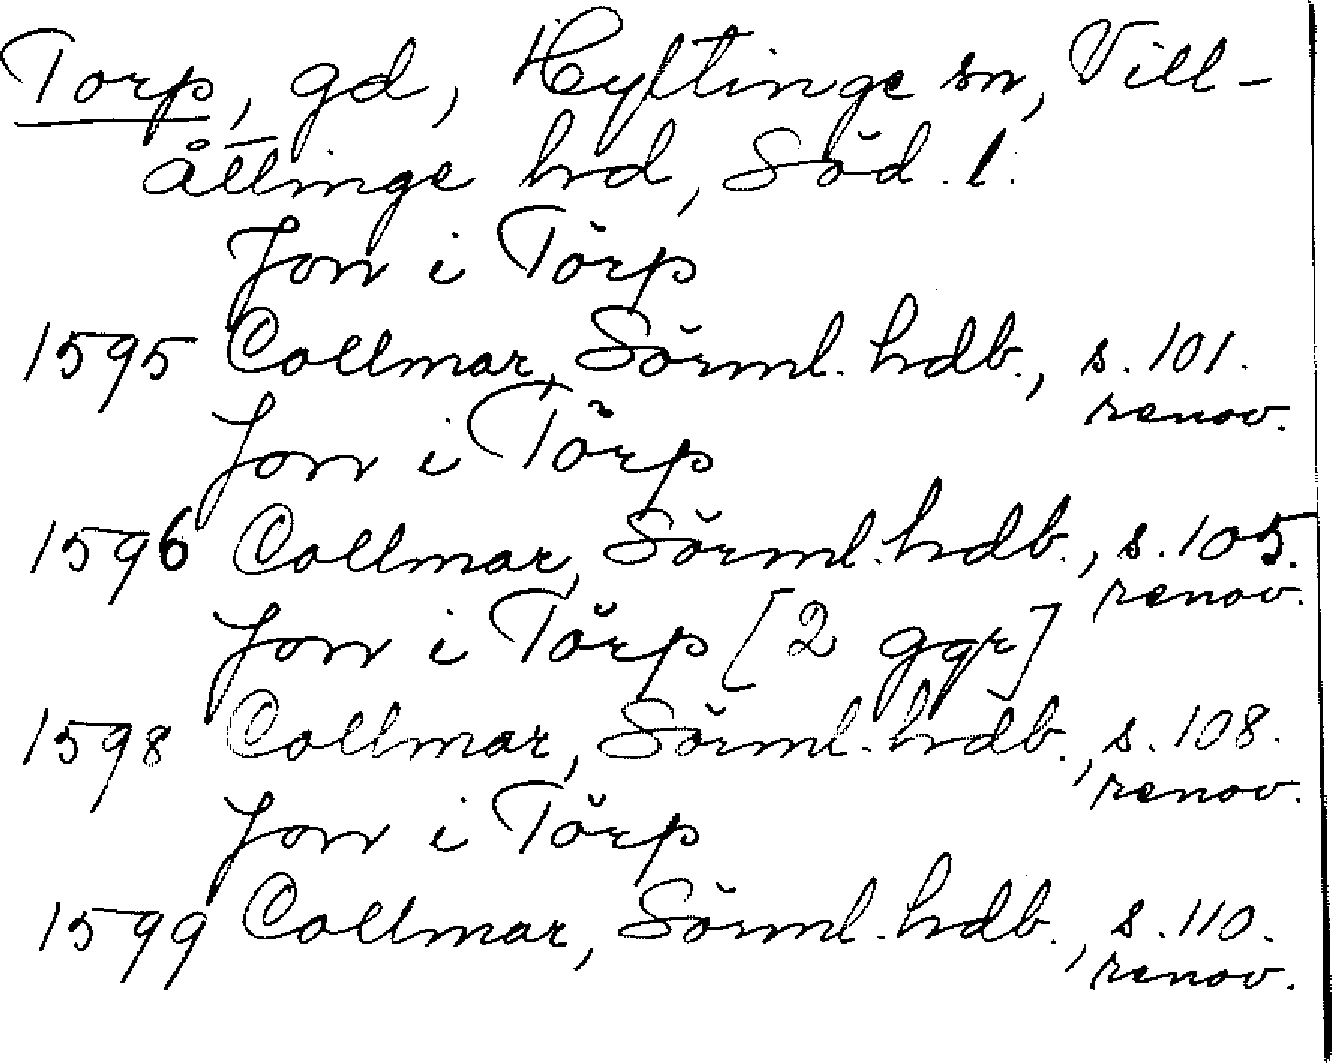 Torp, gd, Hyltinge sn, Vill-
åttinge hd, Söd. l.
Jon i Törp
1595 Collmar, Sörml. hdb., s. 101.
renov.
Jon i Törp
1596 Collmar, Sörml. hdb., s. 105.
renov.
Jon i Törp [2 ggr]
1598 Collmar, Sörml. hdb., s. 108.
renov.
Jon i Törp
1599 Collmar, Sörml. hdb., s. 110.
renov.